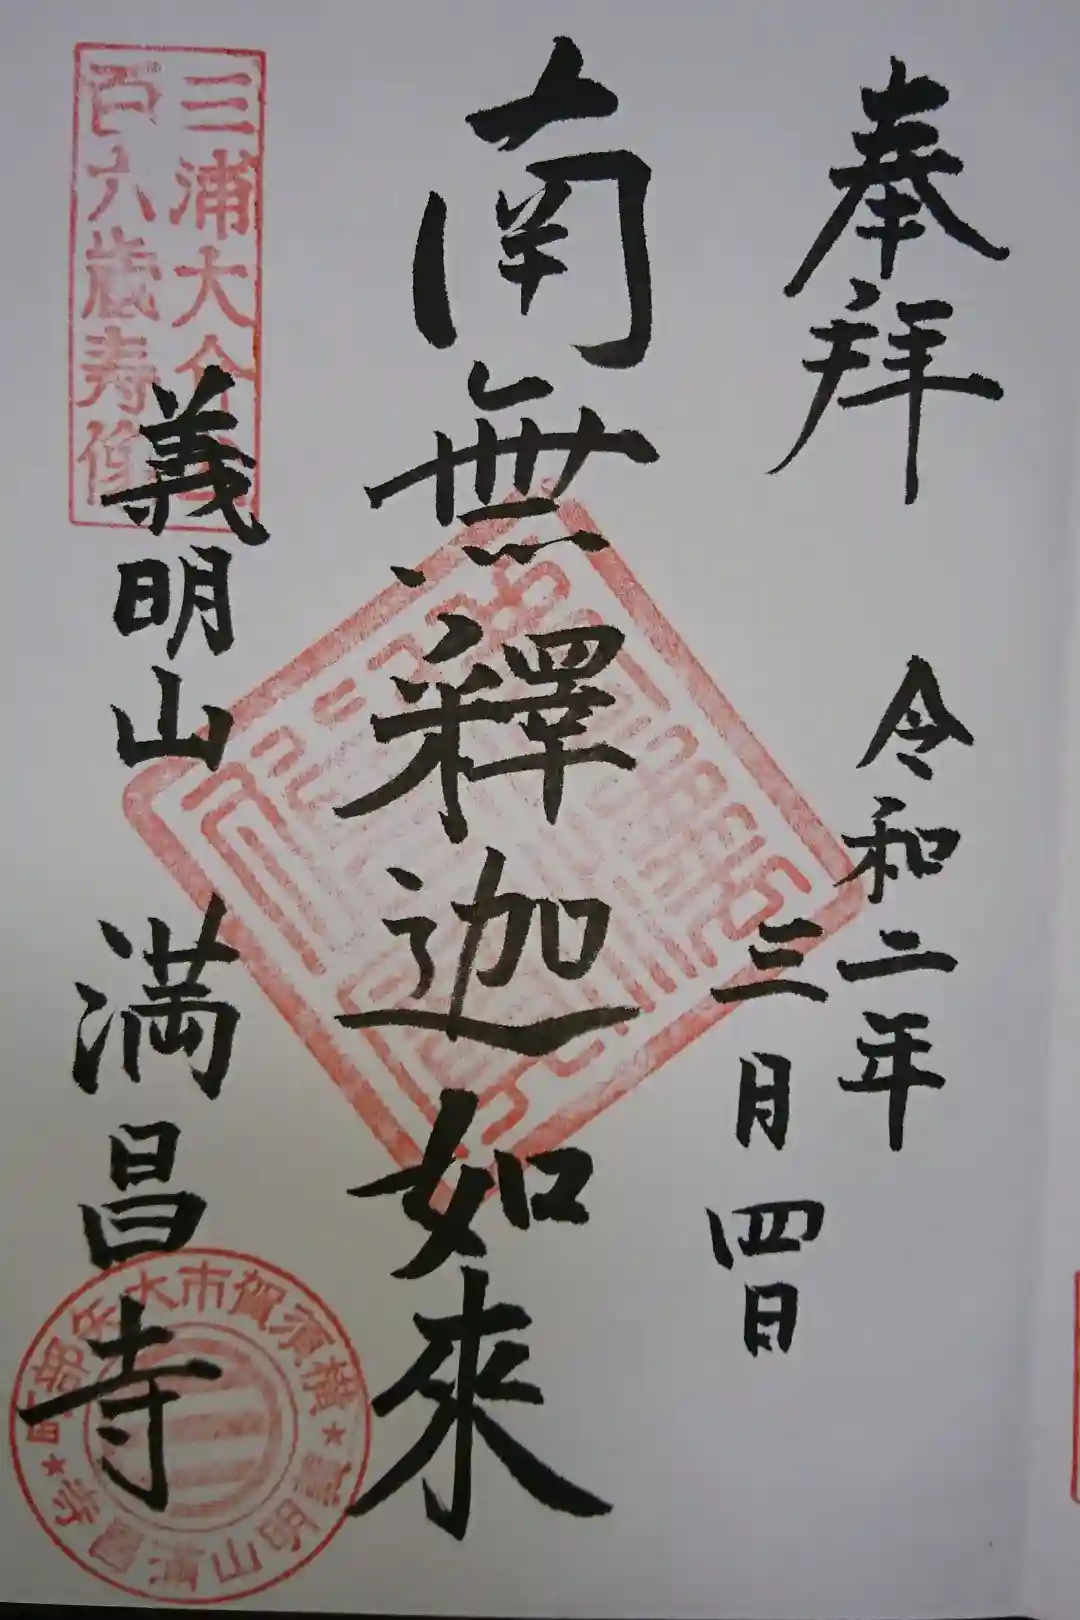 奉拝
令和二年
三月四日
南無釋迦如来
三浦大介
百六歳寿像
義明山 満昌寺
横須賀市大矢部町
義明山満昌寺